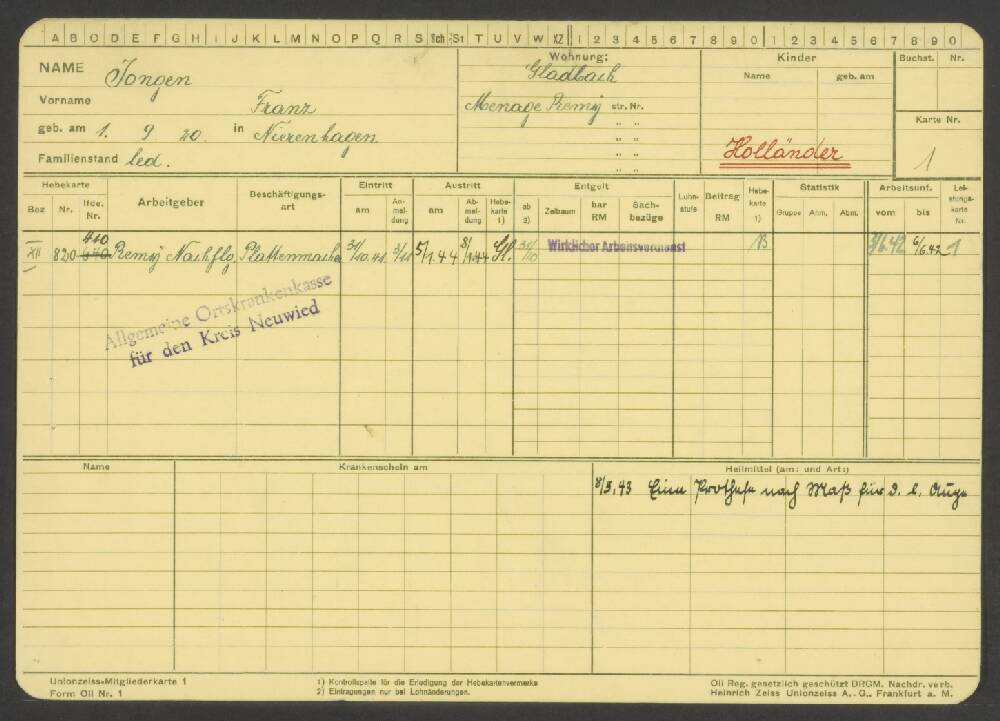 A B C D E F G H I J K L M N O P Q R S Sch St T U V W XZ 1 2 3 4 5 6 7 8 9 0 1 2 3 4 5 6 7 8 9 0
NAME Jongen
Vorname Franz
geb. am 1. 9 20. in Nierenhagen
Familienstand led.
Wohnung:
Gladbach
Menage Remy str. Nr.
" "
" "
" "
" "
Kinder
Name geb. am
Holländer
Buchst. Nr.
Karte Nr.
1
Hebekarte Arbeitgeber Beschäftigungs-art Eintritt Austritt Entgelt Lohn-stufe Beitrag RM Hebe-karte 1) Statistik Arbeitsunf. Lei-stungs-karte Nr.
Bez Nr. lfde. Nr. am An-mel-dung am Ab-mel-dung Hebe-karte 1) ab 2) Zeitraum bar RM Sach-bezüge Gruppe Anm. Abm. vom bis
410
XII 820 640 Remy Nachflg. Plattenmacher 5/1.44 8/1.44 30/10 Wirklicher Arbeitsverdienst 3/6.42 6/6.42 1
Allgemeine Ortskrankenkasse
für den Kreis Neuwied
Name Krankenschein am Heilmittel (am: und Art:)
8/3.43 Eine Prothese nach Maß für d. l. Auge
Unionzeiss-Mitgliederkarte 1
Form Oli Nr. 1
1) Kontrollspalte für die Erledigung der Hebekartenvermerke
2) Eintragungen nur bei Lohnänderungen.
Oli Reg. gesetzlich geschützt DRGM. Nachdr. verb.
Heinrich Zeiss Unionzeiss A.-G., Frankfurt a. M.